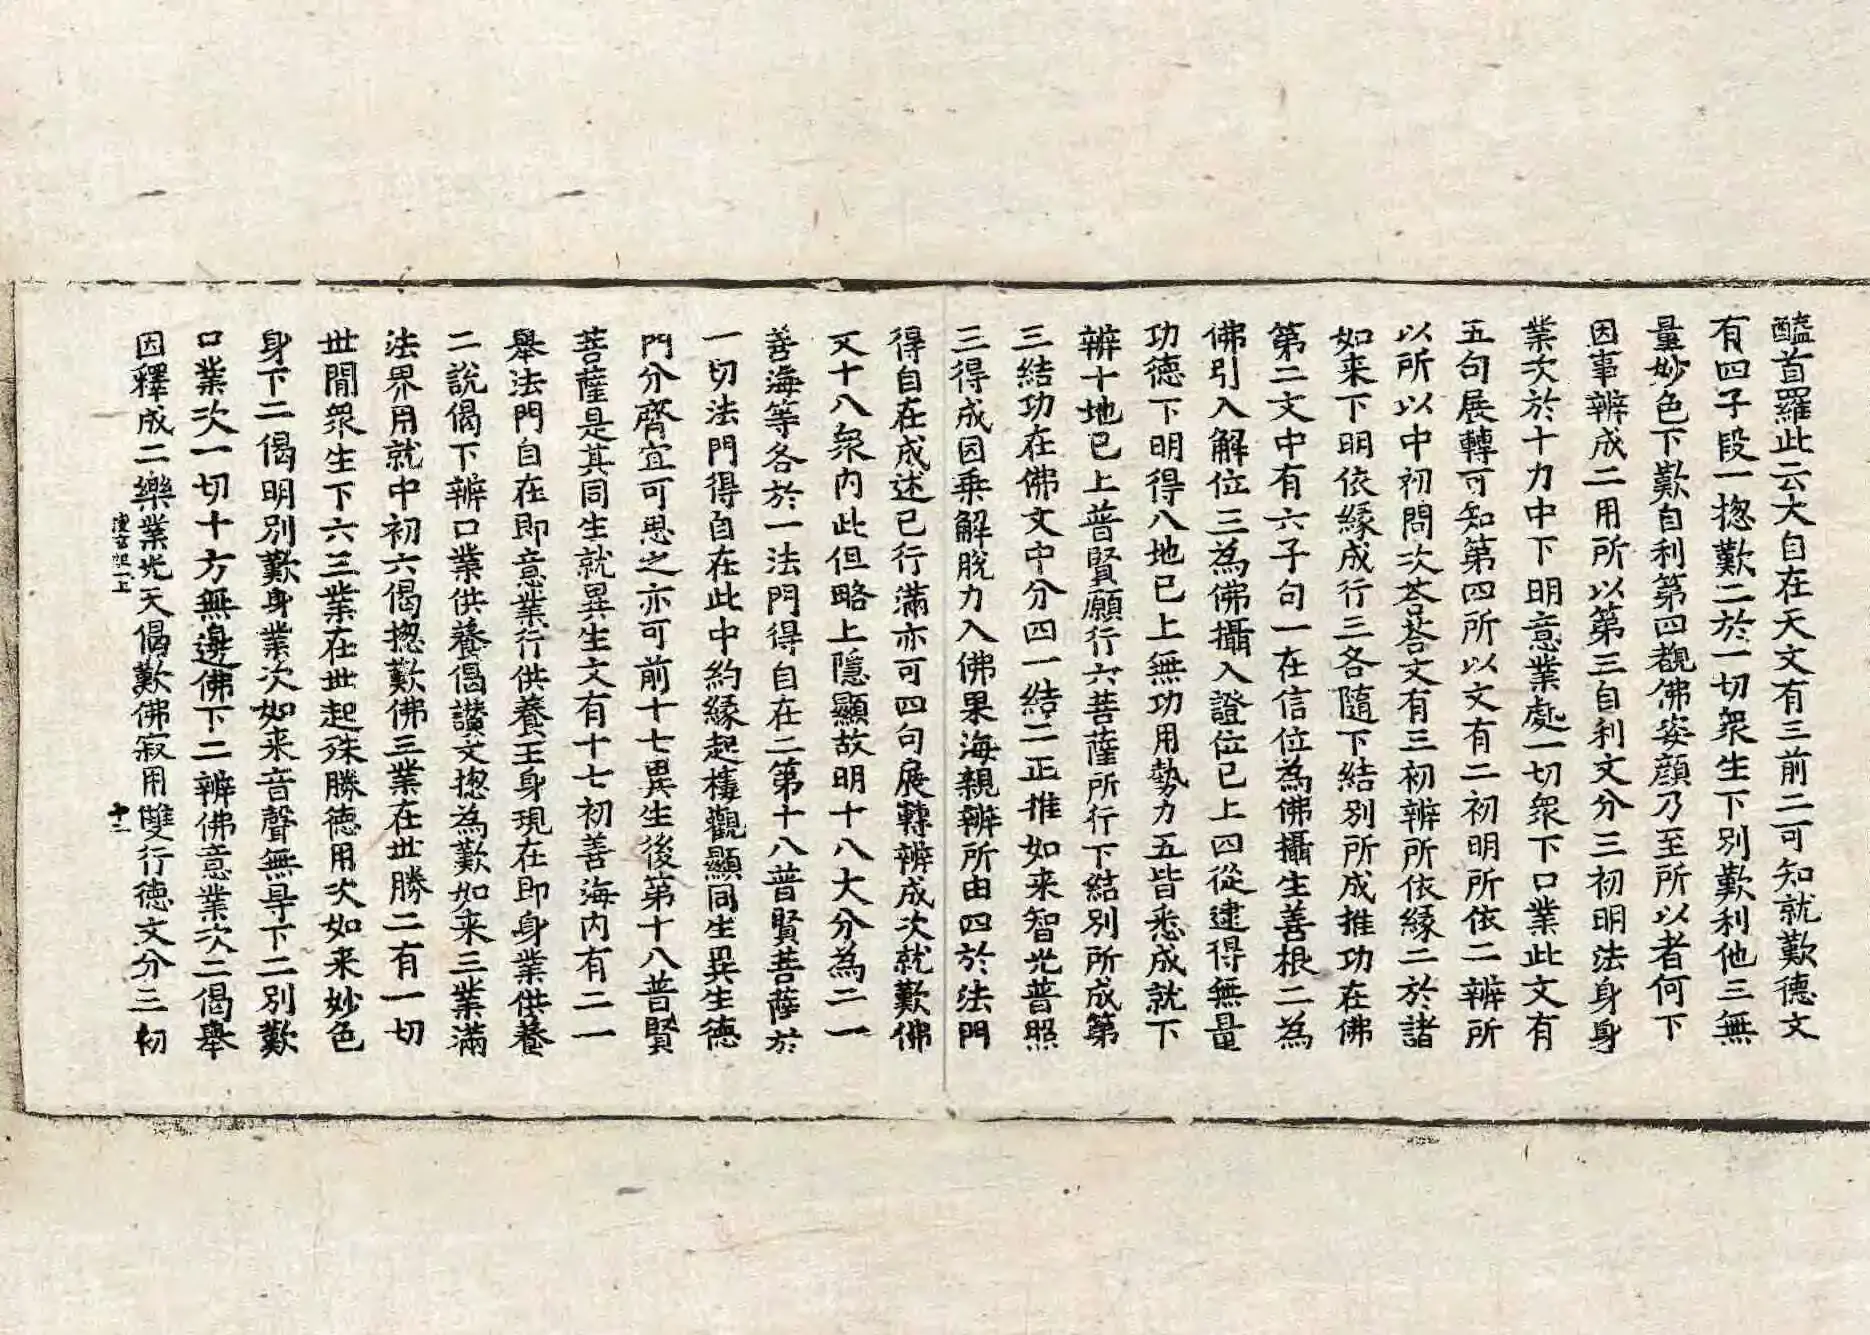 醯首羅此云大自在天文有三前二可知就歎德文
有四子段一揔歎二於一切衆生下別歎利他三無
量妙色下歎自利第四覩佛姿顔乃至所以者何下
因事辨成二用所以第三自利文分三初明法身身
業次於十力中下明意業處一切衆下口業此文有
五句展轉可知第四所以文有二初明所依二辨所
以所以中初問次荅荅文有三初辨所依緣二於諸
如来下明依緣成行三各隨下結別所成推功在佛
第二文中有六子句一在信位為佛攝生善根二為
佛引入解位三為佛攝入證位已上四從逮得無量
功德下明得八地已上無功用勢力五皆悉成就下
辨十地已上普賢願行六菩薩所行下結別所成第
三結功在佛文中分四一結二正推如来智光普照
三得成因乘解脫力入佛果海親辨所由四於法門
得自在成述已行滿亦可四句展轉辨成次就歎佛
文十八衆内此但略上隱顯故明十八大分為二一
善海等各於一法門得自在二第十八普賢菩薩於
一切法門得自在此中約緣起樓觀顯同生異生德
門分齊宜可思之亦可前十七異生後第十八普賢
菩薩是其同生就異生文有十七初善海内有二一
舉法門自在即意業行供養王身現在即身業供養
二說偈下辨口業供養偈讃文揔為歎如来三業滿
法界用就中初六偈揔歎佛三業在世勝二有一切
世間衆生下六三業在世起殊勝德用次如来妙色
身下二偈明別歎身業次如来音聲無㝵下二別歎
口業次一切十方無邊佛下二辨佛意業次二偈舉
因釋成二樂業光天偈歎佛寂用雙行德文分三初
十二